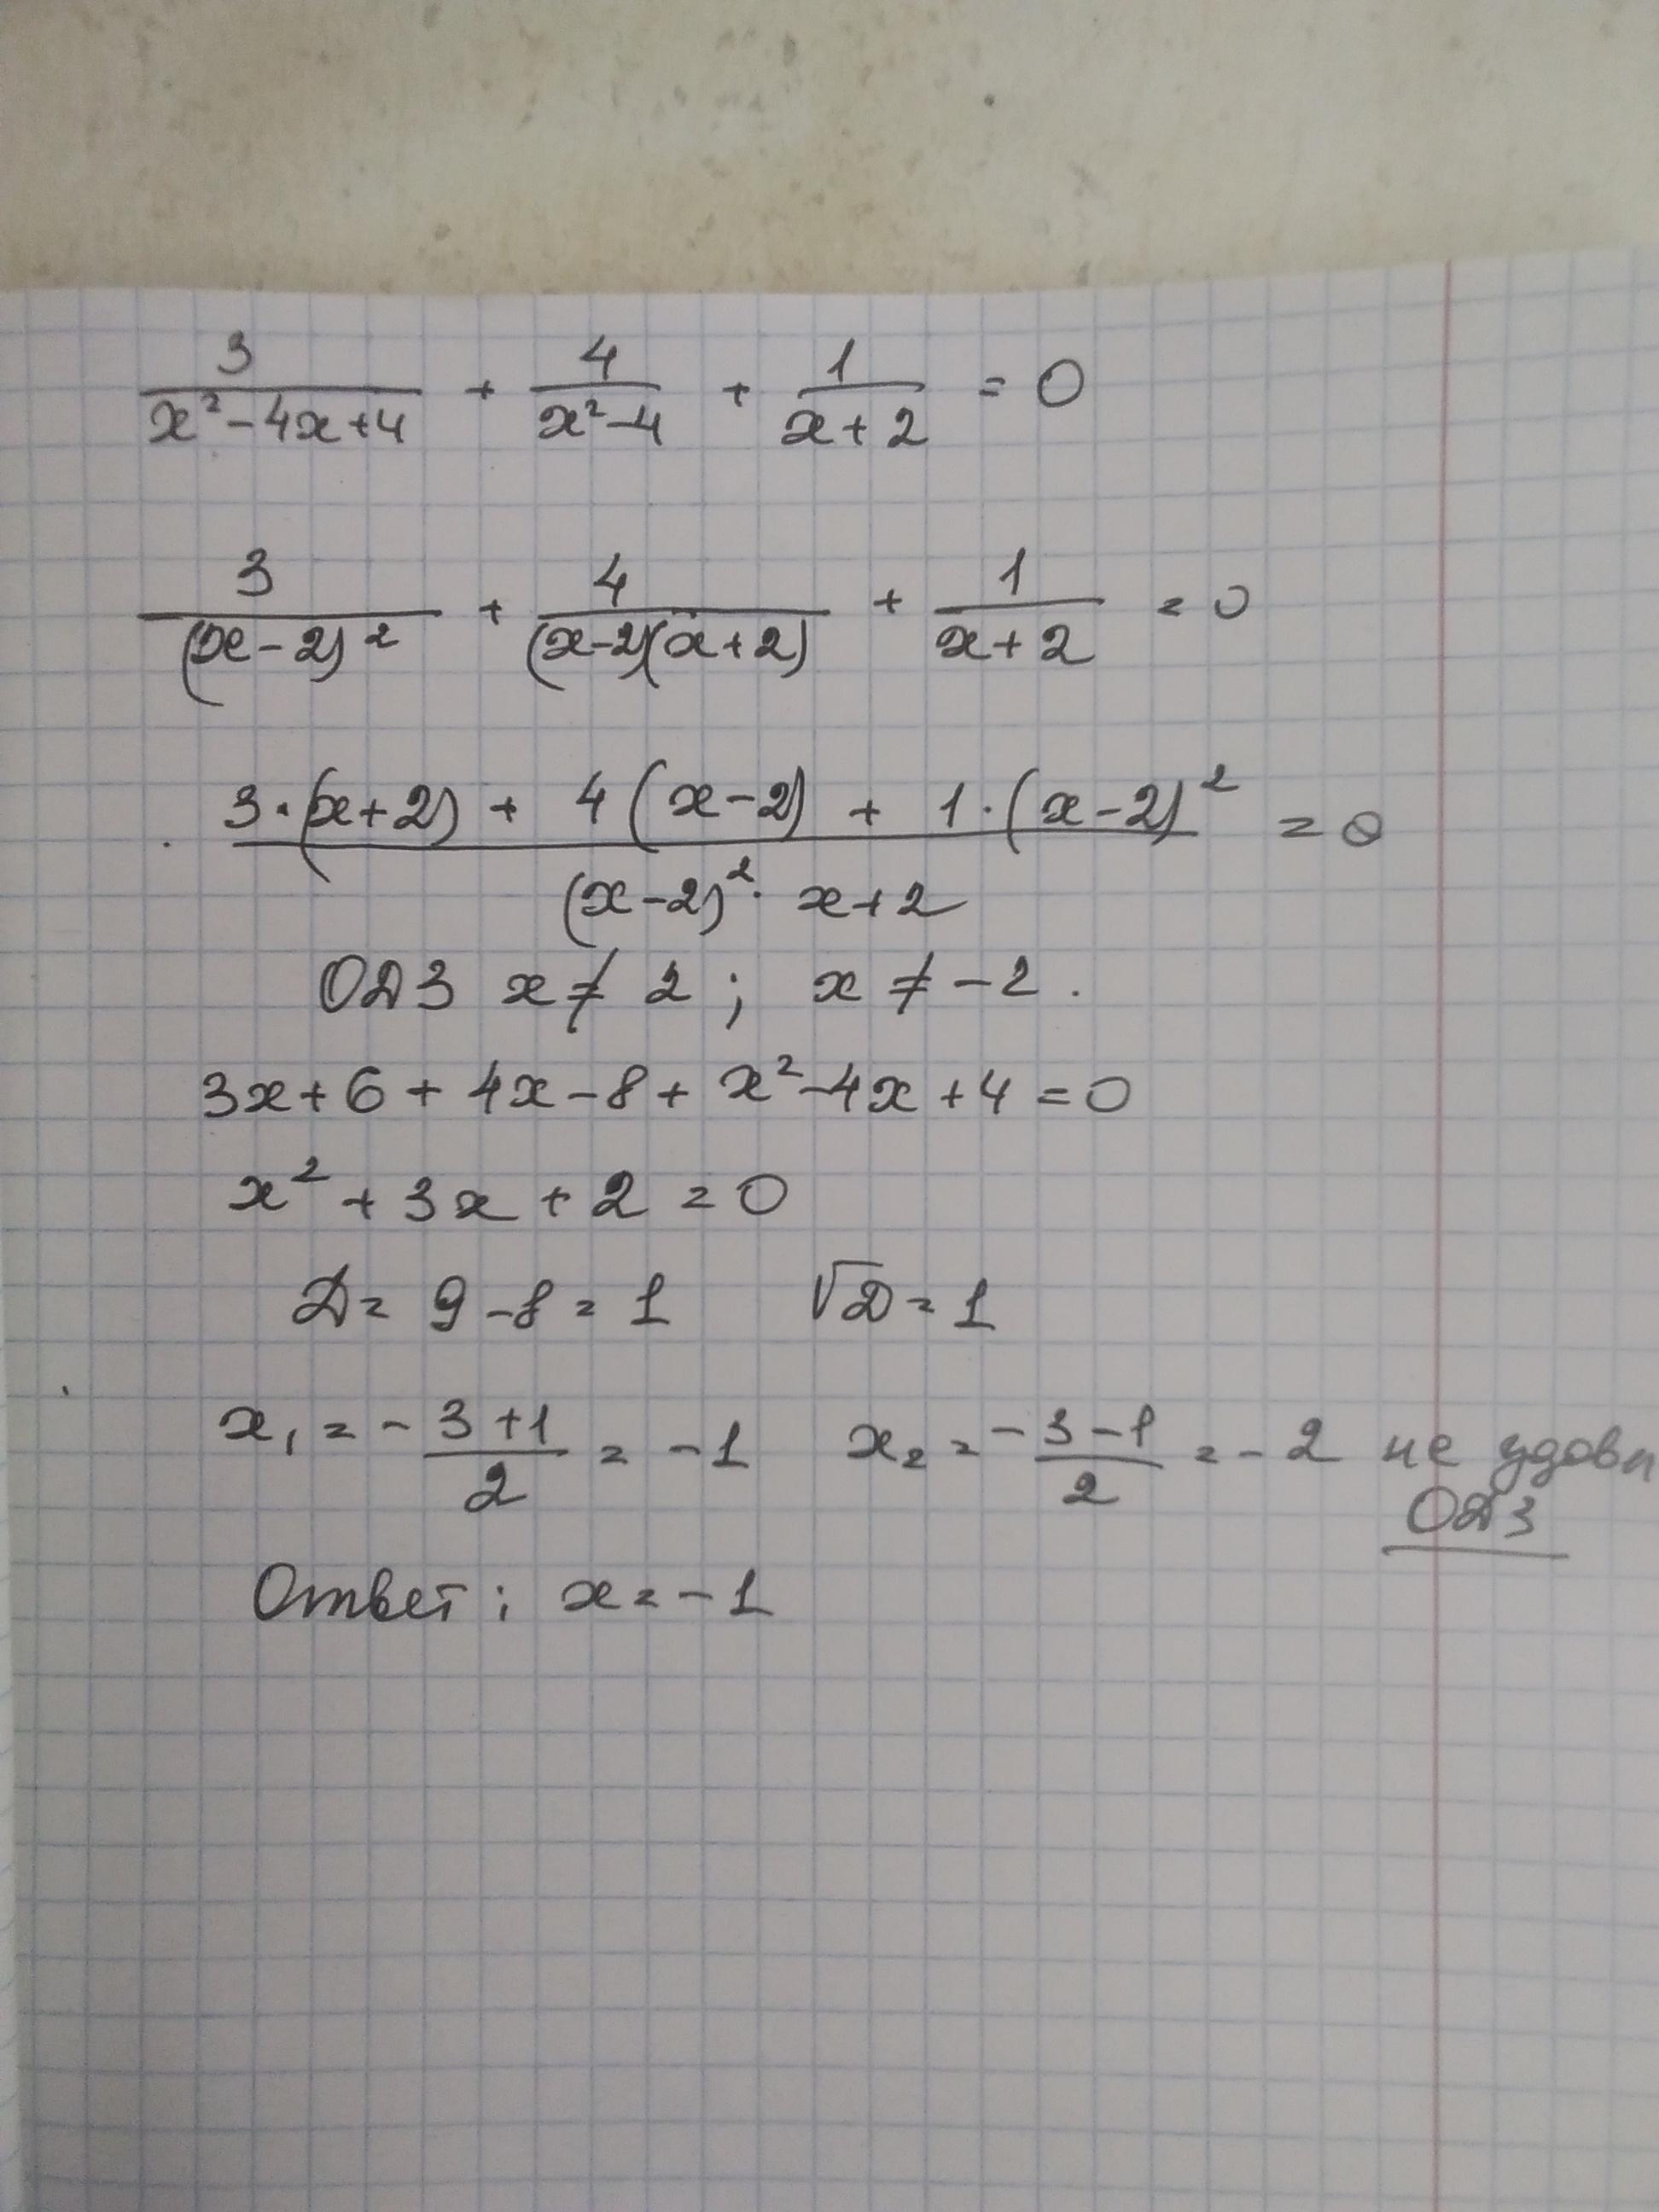 3/(x²-4x+4) + 4/(x²-4) + 1/(x+2) = 0
3/(x-2)² + 4/((x-2)(x+2)) + 1/(x+2) = 0
(3·(x+2) + 4(x-2) + 1·(x-2)²)/((x-2)²· x+2) = 0
ОДЗ x ≠ 2 ; x ≠ -2 .
3x+6 + 4x-8 + x²-4x+4 = 0
x² + 3x + 2 = 0
Д = 9 - 8 = 1 √Д = 1
x₁ = - (3+1)/2 = -1 x₂ = (-3-1)/2 = -2 не удовл
ОДЗ
Ответ: x = -1